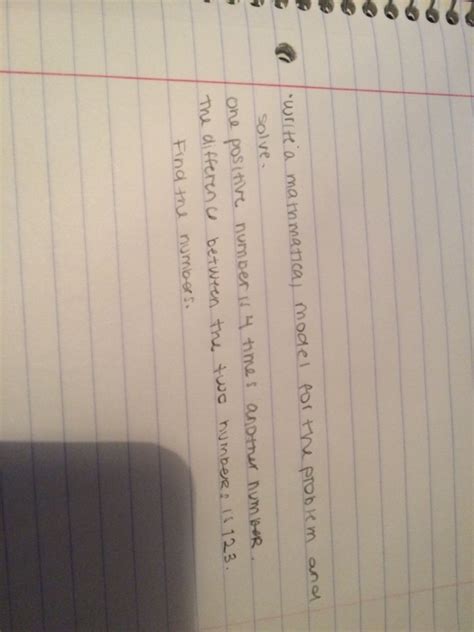 • write a mathmatical model for the problem and
solve.
one positive number is 4 times another number.
The difference between the two numbers is 123.
Find the numbers.